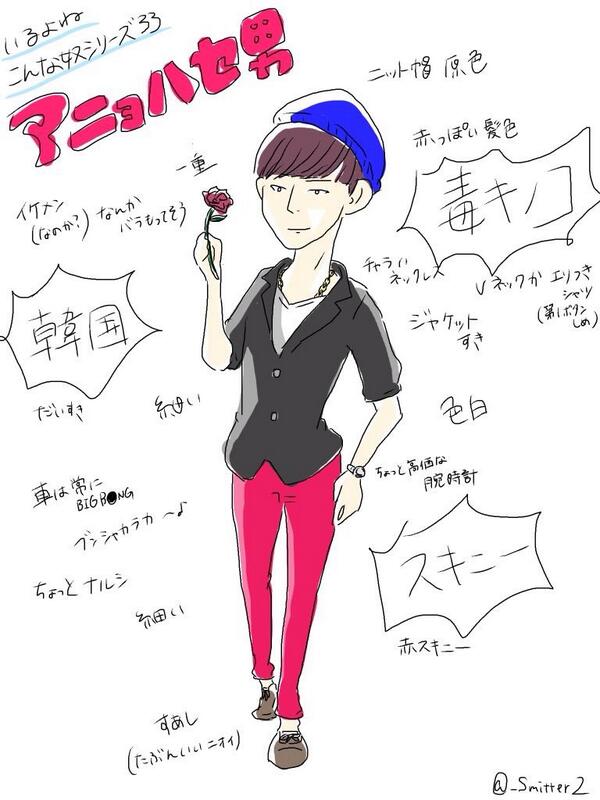 いるよね
こんな奴シリーズ33
アニョハセ男
ニット帽 原色
赤っぽい髪色
毒キノコ
一重
イケメン
(なのか?)
なんか
バラもってそう
チャラい
ネックレス
Vネックか エリつき
シャツ
(第1ボタン
しめ)
ジャケット
すき
韓国
だいすき
細い
色白
ちょっと高価な
腕時計
車は常に
BIGB●NG
ブンシャカラカ〜♪
スキニー
ちょっとナルシ
細い
赤スキニー
すあし
(たぶんいいニオイ)
@_Smitter2